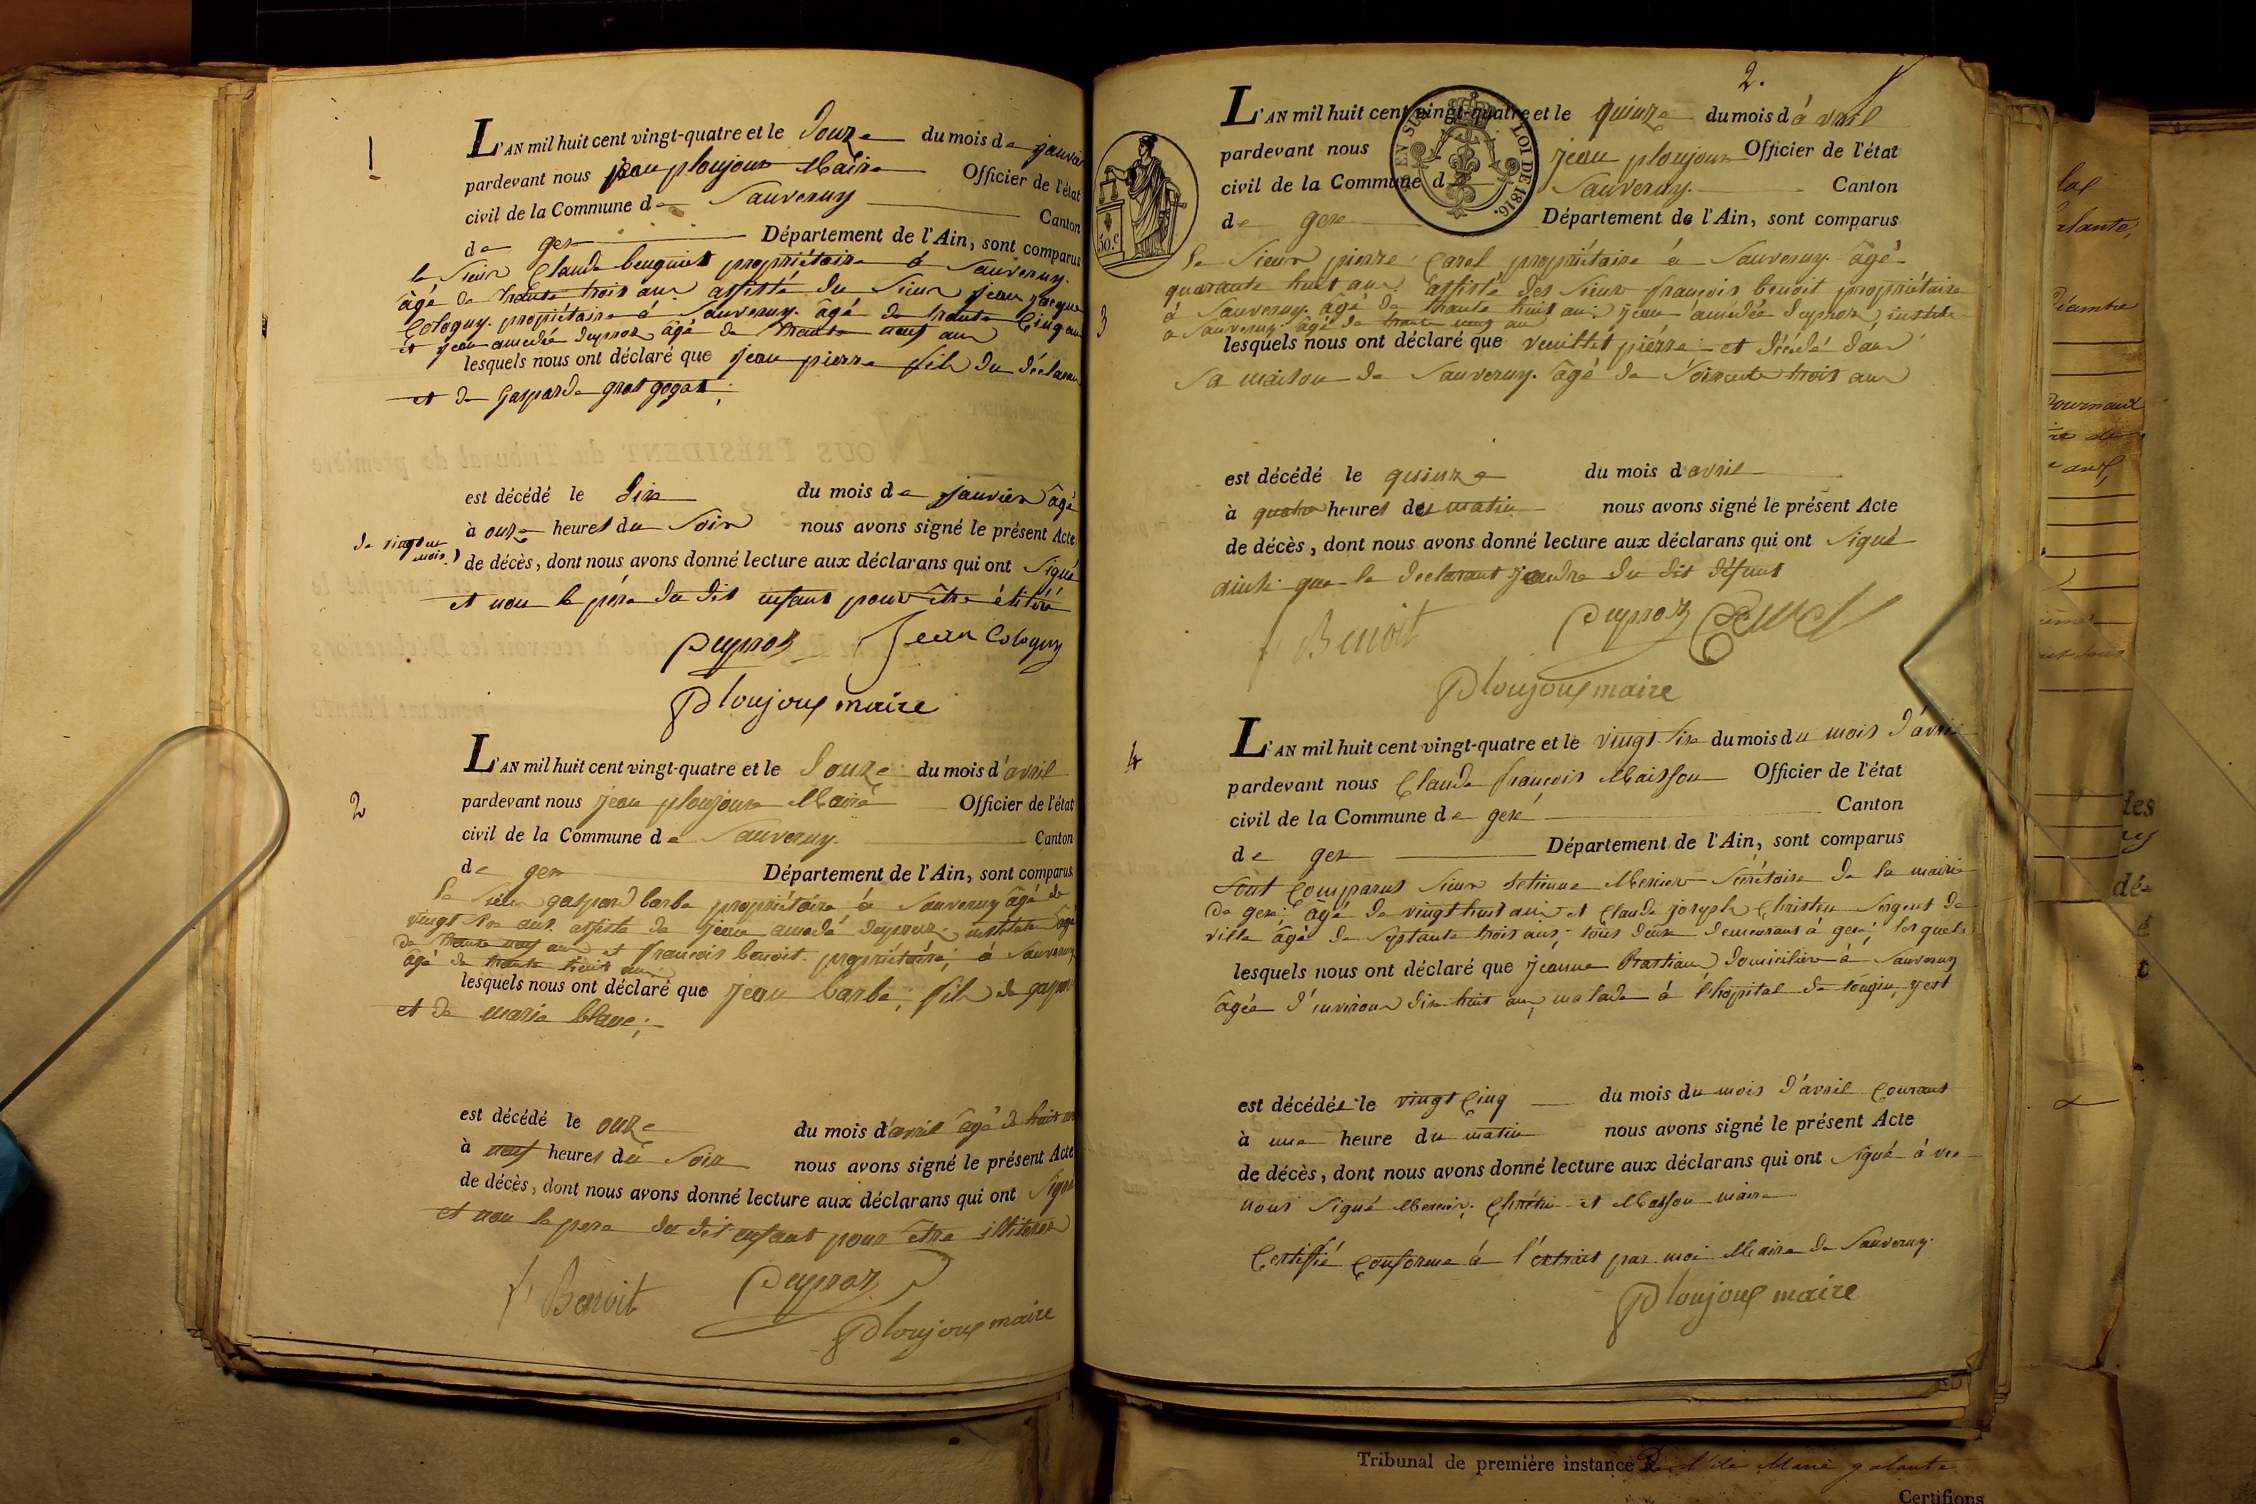 1
L'AN mil huit cent vingt-quatre et le douze du mois de janvier
pardevant nous jean ploujoux Maire Officier de l'état
civil de la Commune de Sauverny Canton
de gex Département de l'Ain, sont comparus
le Sieur Claude propriétaire à Sauverny
âgé de trante trois ans assisté du Sieur jean jacque
Cologny propriétaire à Sauverny âgé de trante Cinq ans
et jean amedée dupraz âgé de trante neuf ans
lesquels nous ont déclaré que jean pierre fils du déclarant
et de gasparde gros
est décédé le dix du mois de janvier âgé
à onze heures du Soir nous avons signé le présent Acte
de vingt un mois
de décès, dont nous avons donné lecture aux déclarans qui ont Signé
et non le père du dit enfant pour être
Jean Cologny
Ploujoux maire
2
L'AN mil huit cent vingt-quatre et le douze du mois d'avril
pardevant nous jean ploujoux Maire Officier de l'état
civil de la Commune de Sauverny Canton
de gex Département de l'Ain, sont comparus
Le Sieur gaspard barbe propriétaire à Sauverny âgé de
vingt ans assisté de jean amedé dupraz âgé
de trante neuf ans et francois benoit propriétaire à Sauverny
âgé de trante huit ans
lesquels nous ont déclaré que jean barbe, fils de gaspard
et de marie
est décédé le onze du mois d'avril âgé de huit
à neuf heures du Soir nous avons signé le présent Acte
de décès, dont nous avons donné lecture aux déclarans qui ont Signé
et non le pere du dit enfant pour être
f. Benoit
Ploujoux maire
2.
L'AN mil huit cent vingt-quatre et le quinze du mois d'avril
pardevant nous jean ploujoux Officier de l'état
civil de la Commune de Sauverny Canton
de gex Département de l'Ain, sont comparus
EN SUS LOI DE 1816.
50.c
3
Le Sieur pierre Carel propriétaire à Sauverny âgé
quarante huit ans assisté des Sieur françois benoit propriétaire
à Sauverny âgé de trante huit ans jean amedée dupraz
à Sauverny âgé de trante neuf ans
lesquels nous ont déclaré que vuillet pierre est décédé dans
Sa maison de Sauverny âgé de Soixante trois ans
est décédé le quinze du mois d avril
à quatre heures du matin nous avons signé le présent Acte
de décès, dont nous avons donné lecture aux déclarans qui ont signé
ainsi que le declarant du dit défunt
f Benoit
Ploujoux maire
4
L'AN mil huit cent vingt-quatre et le vingt Six du mois du mois d'avril
pardevant nous Claude françois Maisson Officier de l'état
civil de la Commune de gex Canton
de gex Département de l'Ain, sont comparus
Sont Comparus Sieur Secrétaire de la mairie
de gex âgé de vingt huit ans et Claude joseph Sergent de
ville âgé de Septante trois ans, tous deux demeurant à gex lesquels
lesquels nous ont déclaré que jeanne domiciliée à Sauverny
âgée d'environ dix huit ans, malade à l'hopital de y est
est décédée le vingt Cinq du mois du mois d'avril Courant
à une heure du matin nous avons signé le présent Acte
de décès, dont nous avons donné lecture aux déclarans qui ont signé avec
nous Signé et Masson maire
Certiffié Conforme à l'extrait par moi Maire de Sauverny
Ploujoux maire
Tribunal de première instance
Certifions